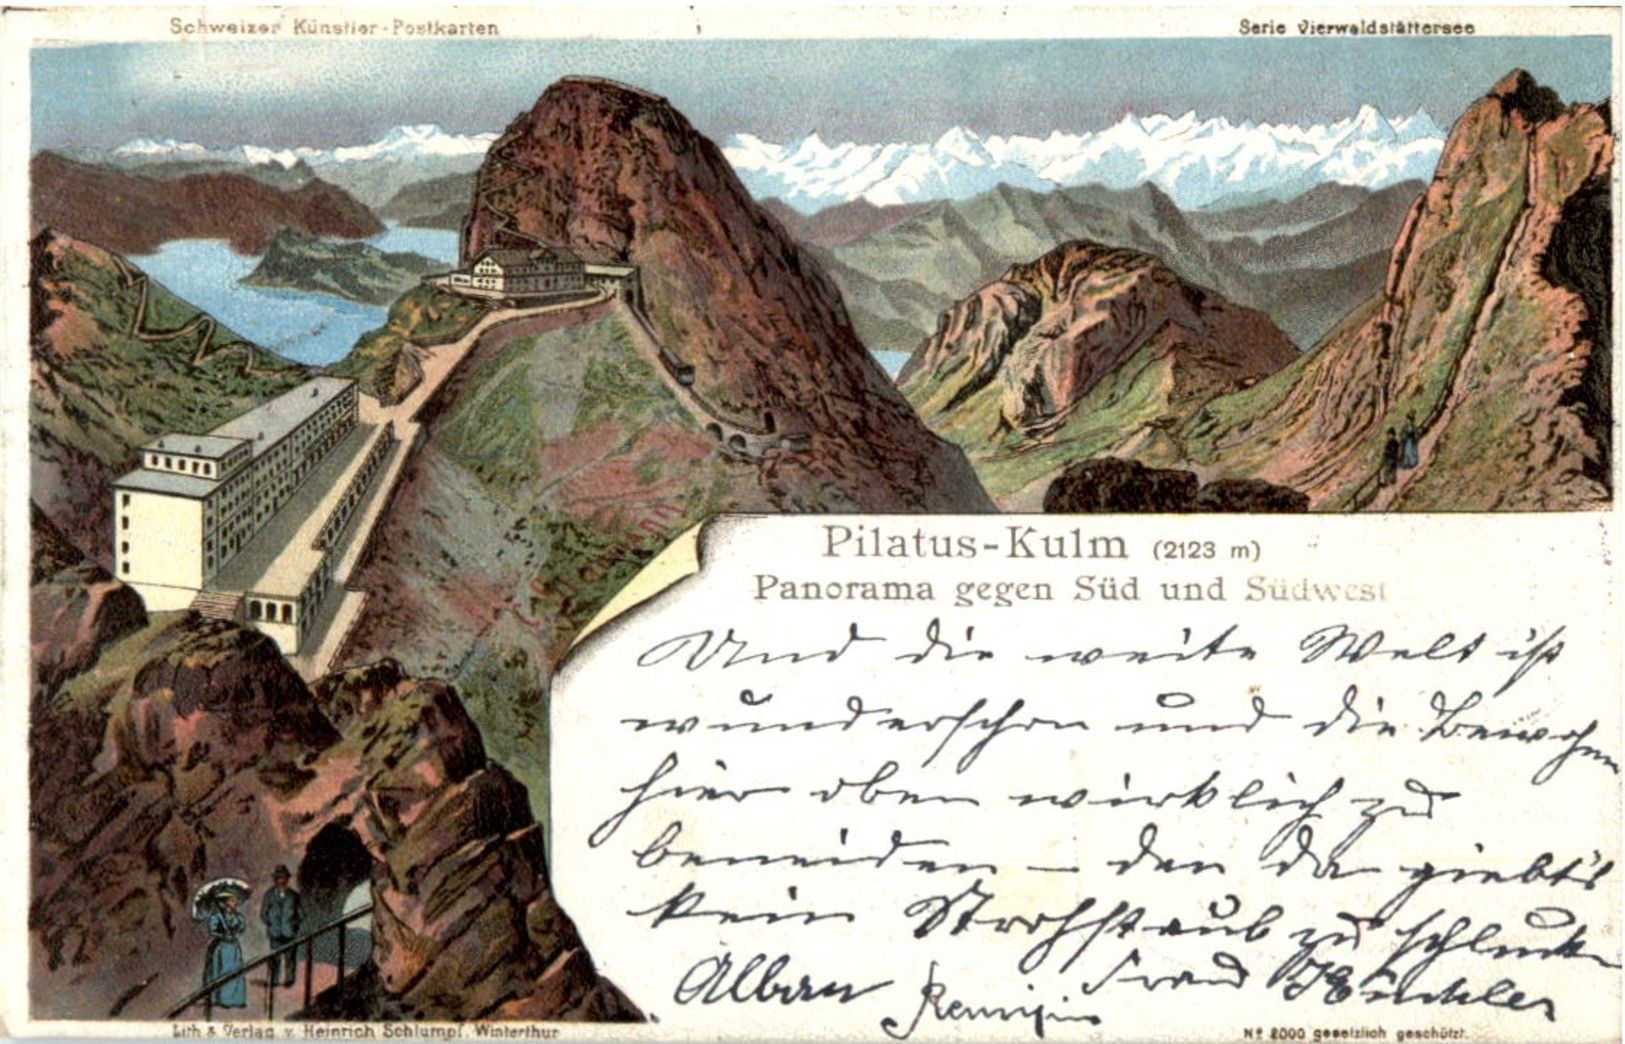 Schweizer Künstler-Postkarten
Serie Vierwaldstättersee
Pilatus-Kulm (2123 m)
Panorama gegen Süd und Südwest
Und die weite Welt ist
wunderschön und die Bewohner
hier oben wirklich zu
beneiden – den da giebt's
kein Strohstaub zu schlucken
Alban Remigius Frau
Lith & Verlag v. Heinrich Schlumpf. Winterthur
No 2000 gesetzlich geschützt.